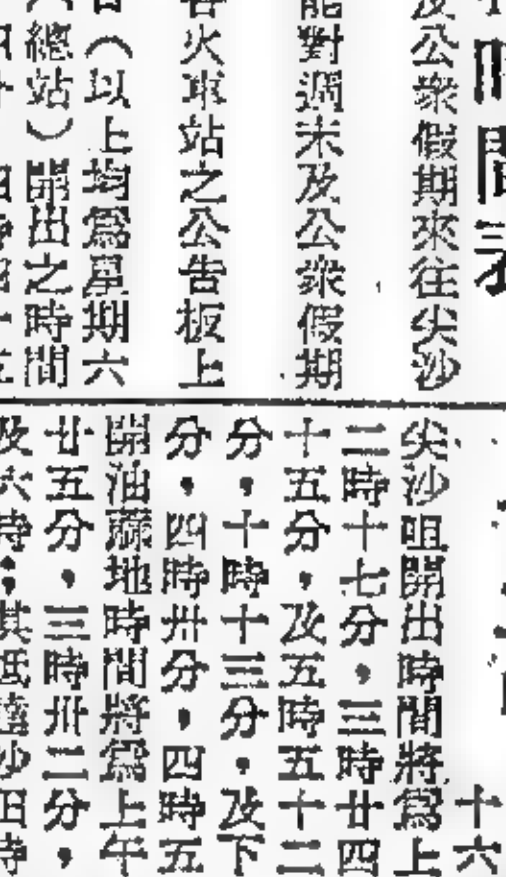 時間表
及公衆假期來往尖沙
能對週末及公衆假期
火車站之公告板上
（以上均爲星期六
總站）開出之時間
十六
尖沙咀開出時間將爲上
二時十七分，三時廿四
十五分，及五時五十二
分，十時十三分，及下
分，四時卅分，四時五
開油蔴地時間將爲上午
廿五分，三時卅二分，
及六時；其抵達沙田時